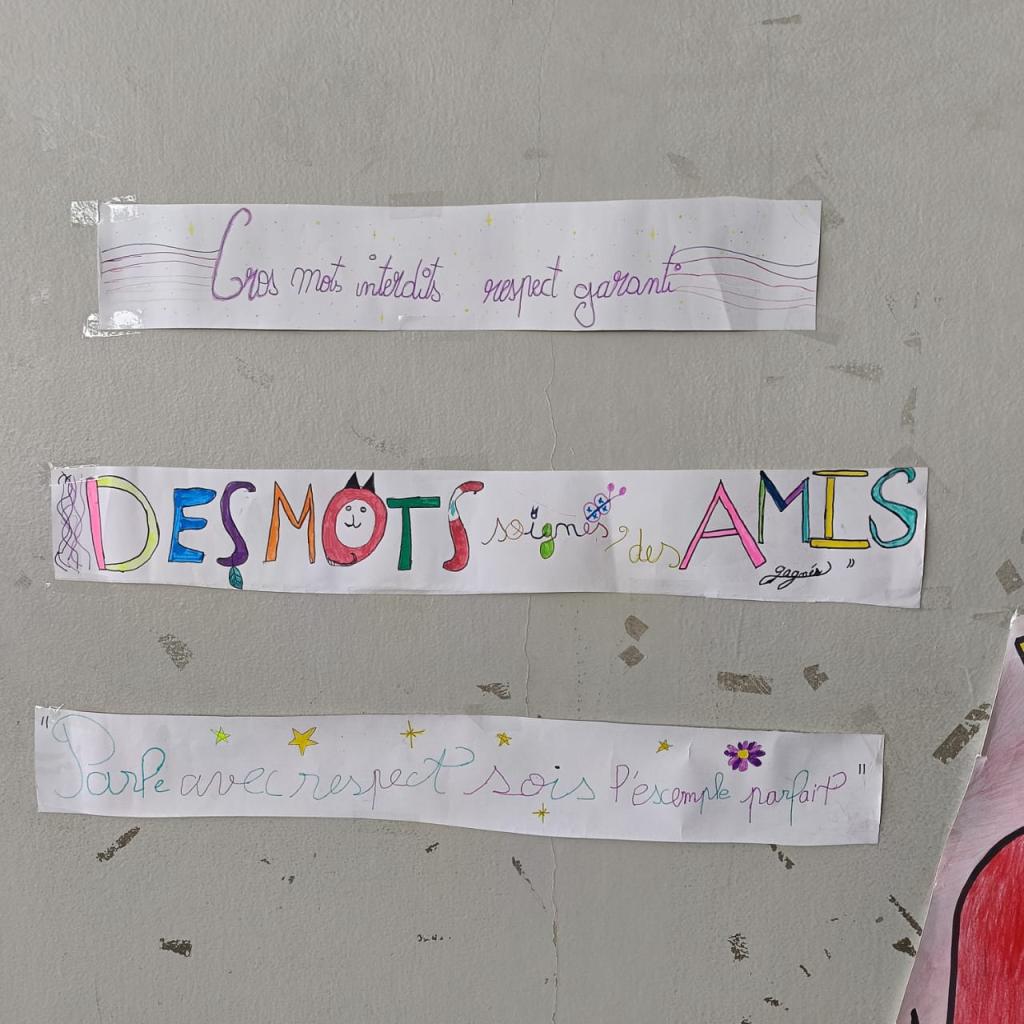 Gros mots interdits respect garanti
DES MOTS soignés, des AMIS gagnés "
" Parle avec respect sois l'éxcemple parfait "